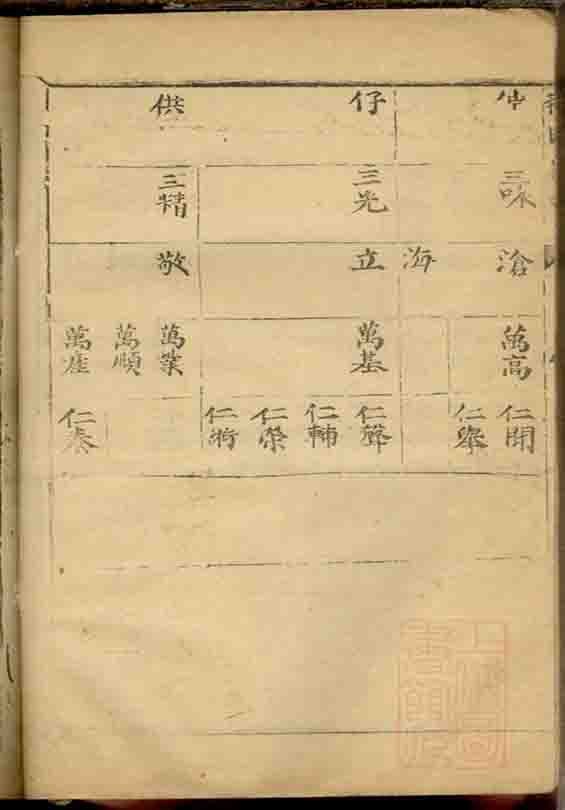 仲
三味
滄 海
萬高
仁開 仁舉
仔
三光
立
萬基
仁聲 仁輔 仁榮 仁將
供
三精
敬
萬業 萬順 萬產
仁泰
上海圖書館藏